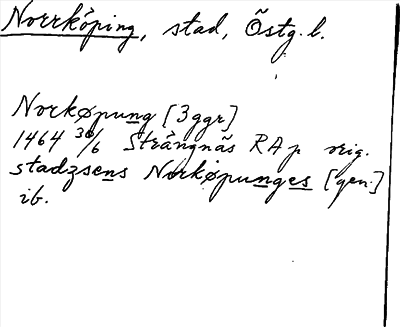 Norrköping, stad, Östg.l.
Norkøpung [3ggr]
1464 30/6 Strängnäs RAp orig.
stadzsens Norkøpunges [gen.]
ib.